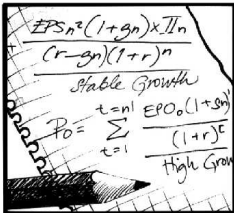 EPSn²(1+gn)×Πn
(r-gn)(1+r)ⁿ
Stable Growth
P₀= t=n1 Σ t=1 EPO₀(1+gn)ᵗ
(1+r)ᵗ
High Grow